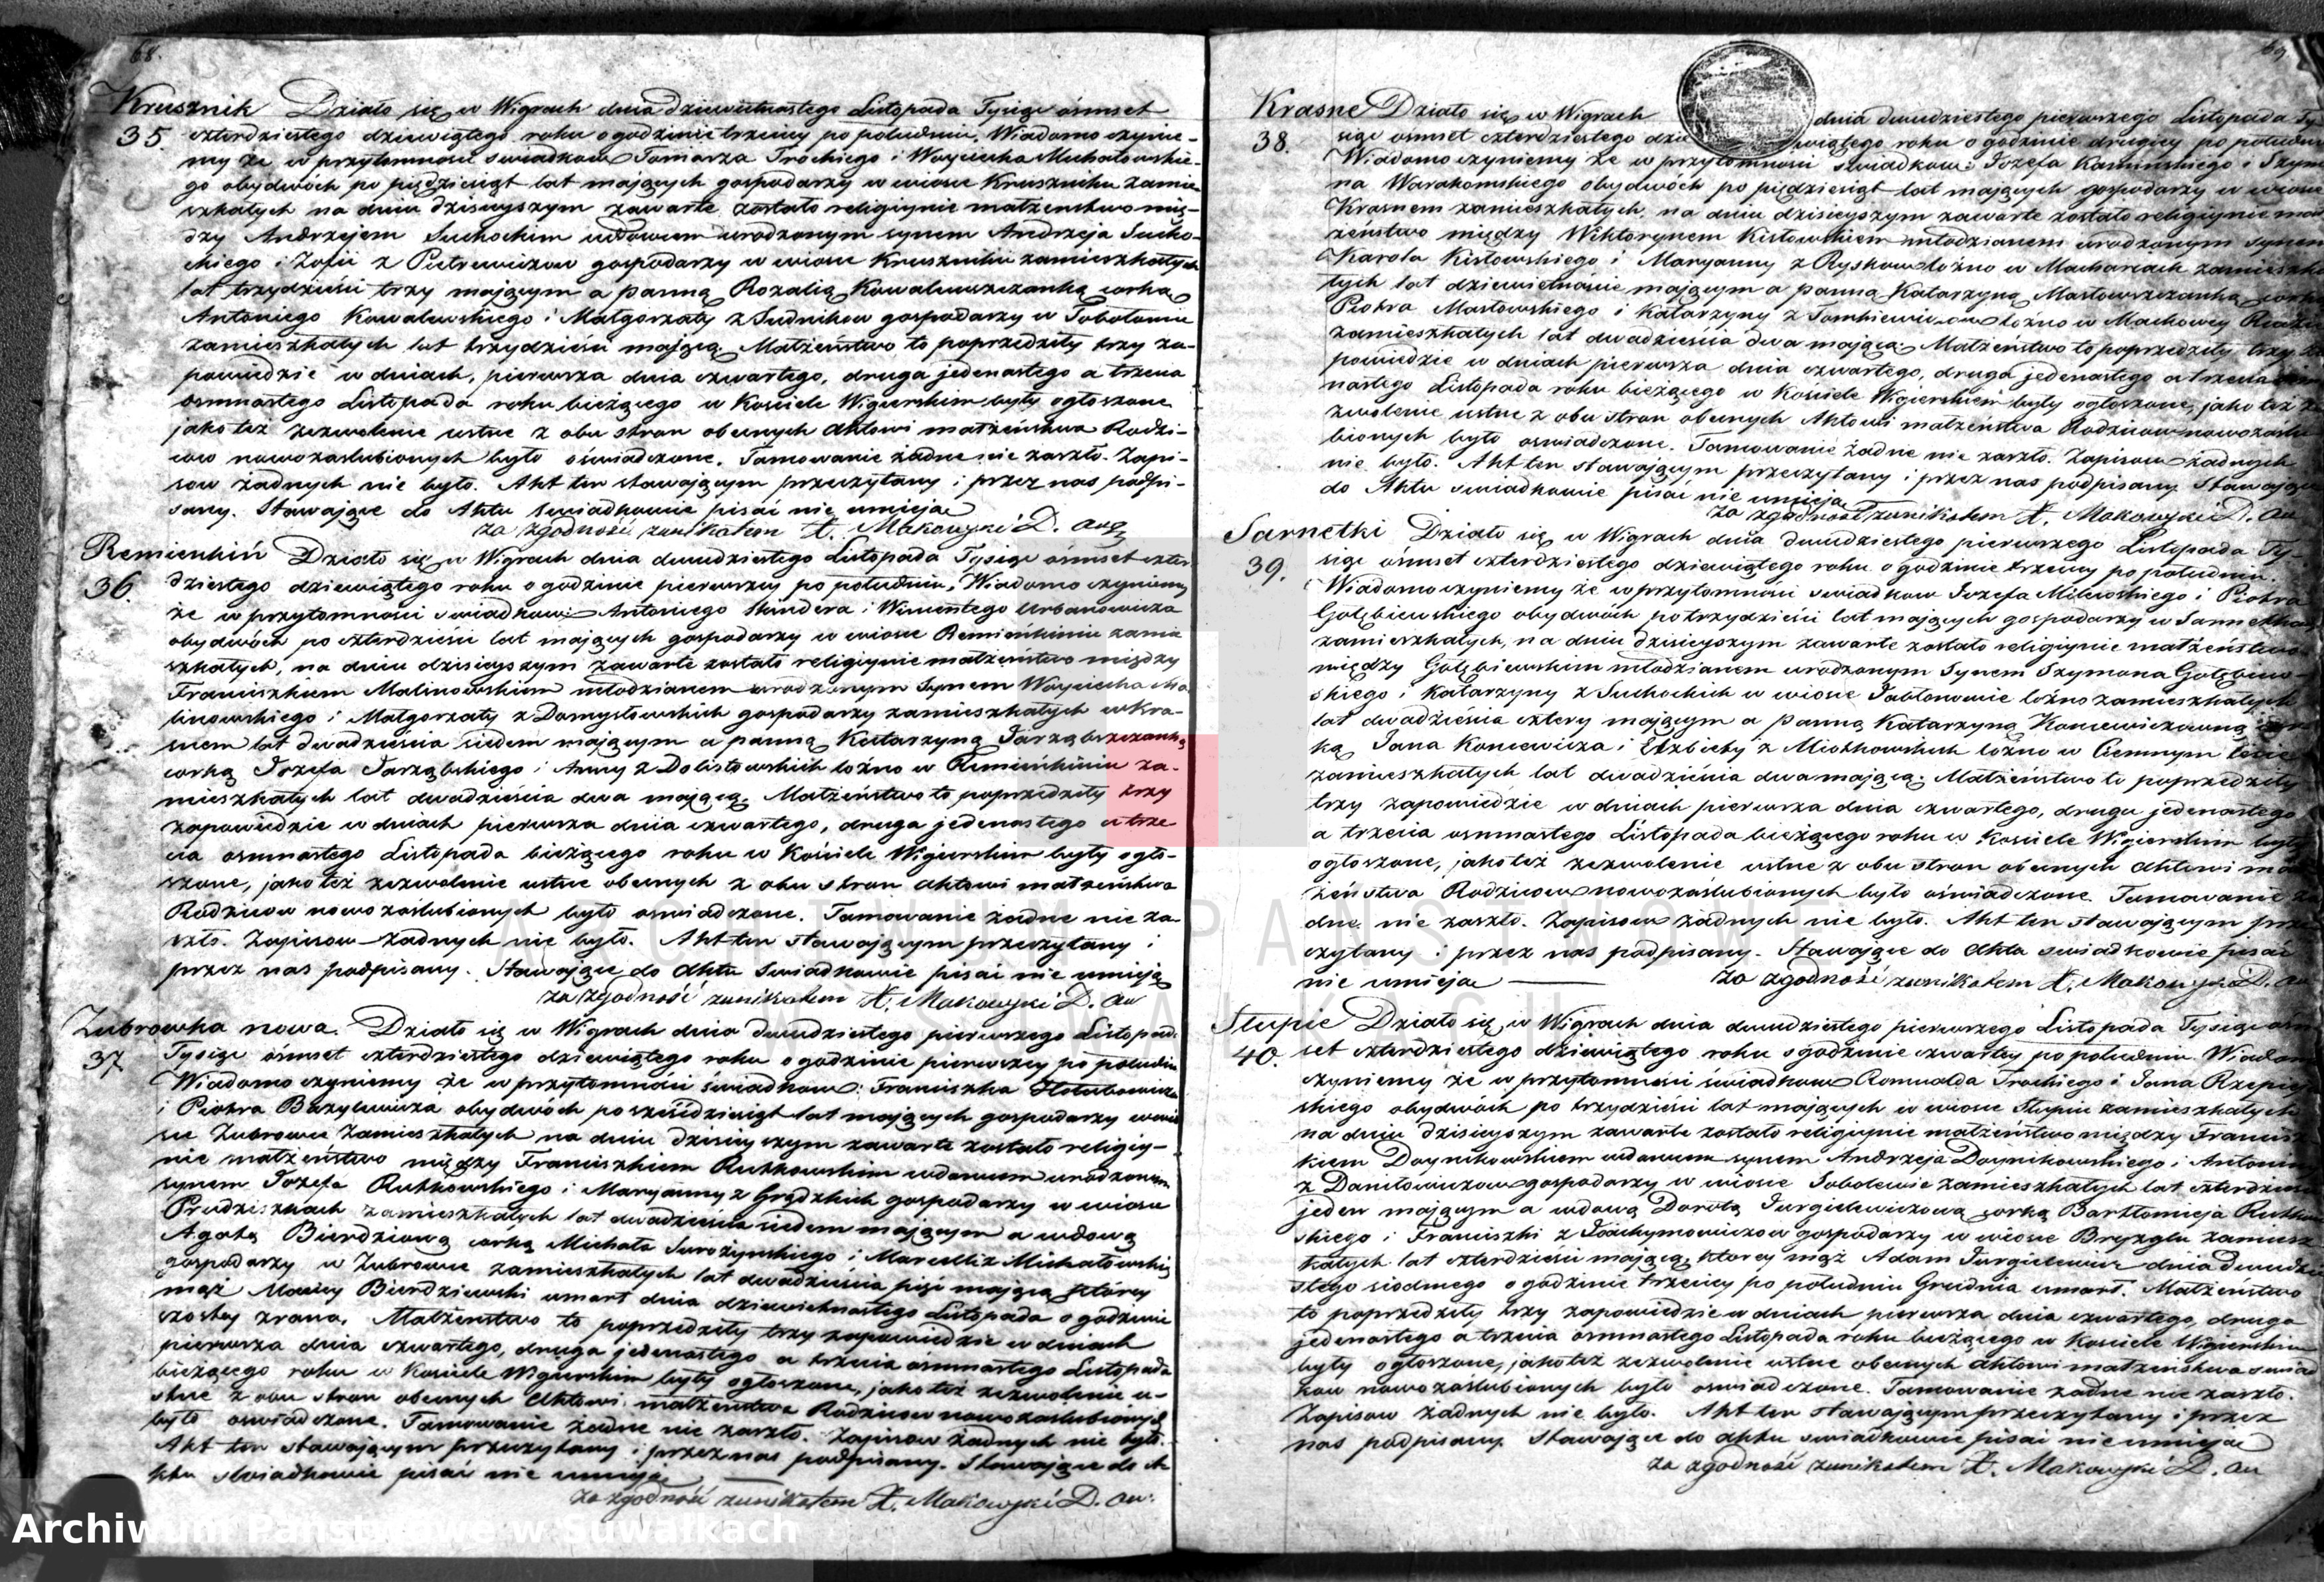 68.
Krusznik Działo się w Wigrach dnia dziewietnastego Listopada Tysiąc ósmset
35 czterdziestego dziewiątego roku o godzinie trzeciey po południu. Wiadomo czynie-
my że w przytomności swiadkow Tomasza Trochiego i Woyciecha Michałowskie-
go obydwóch po pięćdziesiąt lat maiących gospodarzy w wiosce Kruszniku zamie
szkałych na dniu dzisieyszym zawarte zostało religiynie małżenstwo mię-
dzy Andrzejem Suchockim wdowcem urodzonym synem Andrzeja Sucho-
ckiego i Zofii z Pietrewiczow gospodarzy w wiosce Kruszniku zamieszkałych
lat trzydzieści trzy mającym a panną Rozalią Kowalewszczanką corką
Antoniego Kowalewskiego i Małgorzaty z Sudnikow gospodarzy w Sobolowie
zamieszkałych lat trzydzieści mającą. Małżeństwo to poprzedziły trzy za-
powiedzie w dniach, pierwsza dnia czwartego, druga jedenastego a trzecia
osmnastego Listopada roku bieżącego w Kościele Wigierskim były ogłoszone
jako też zezwolenie ustne z obu stron obecnych Aktowi małżeństwa Rodzi-
cow nowozaslubionych było oświadczone. Tamowanie żadne nie zaszło. Zapi-
sow żadnych nie było. Akt ten stawającym przeczytany i przez nas podpi-
sany. Stawające do Aktu Swiadkowie pisać nie umieją
za zgodność z unikatem X. Makowski D. Aug
Remienkiń Działo się w Wigrach dnia dwudziestego Listopada Tysiąc ósmset czter
36. dziestego dziewiątego roku o godzinie pierwszey po południu, Wiadomo czyniemy
że w przytomności swiadkow: Antoniego Skindera i Wincentego Urbanowicza
obydwóch po czterdzieści lat mających gospodarzy w wiosce Remieńkiniu zamie
szkałych, na dniu dzisieyszym zawarte zostało religiynie małżeństwo między
Franciszkiem Malinowskim młodzianem urodzonym Synem Woyciecha Ma
linowskiego i Małgorzaty z Domysłowskich gospodarzy zamieszkałych w Kra-
snem lat dwadzieścia siedem mającym a panną Katarzyną Jarząbszczanką
corką Jozefa Jarząbskiego i Anny z Dolistowskich łóżno w Remieńkiniu za-
mieszkałych lat dwadzieścia dwa mającą. Małżeństwo to poprzedziły trzy
zapowiedzie w dniach pierwsza dnia czwartego, druga jedenastego a trze
cia osmnastego Listopada bieżącego roku w Kościele Wigierskim były ogło-
szone, jako też zezwolenie ustne obecnych z obu stron Aktowi małżeństwa
Rodzicow nowozaslubionych było oswiadczone. Tamowanie żadne nie za-
szło. Zapisow żadnych nie było. Akt ten stawającym przeczytany i
przez nas podpisany. Stawające do Aktu Swiadkowie pisać nie umieją
za zgodność z unikatem X. Makowski D. Au
Zubrowka nowa. Działo się w Wigrach dnia dwudziestego pierwszego Listopad.
37. Tysiąc ósmset czterdziestego dziewiątego roku o godzinie pierwszey po południu
Wiadomo czyniemy że w przytomności świadkow: Franciszka Hołubowicza
i Piotra Bazylewicza obydwóch po sześćdziesiąt lat mających gospodarzy w wio
sce Zubrowce Zamieszkałych na dniu dzisieyszym zawarte zostało religiy-
nie małżeństwo między Franciszkiem Rutkowskim wdowcem urodzonym
synem Jozefa Rutkowskiego i Maryanny z Grądzkich gospodarzy w wiosce
Prudziszkach zamieszkałych lat dwadzieścia siedem mającym a wdową
Agatą Bierdziową corką Michała Surożynskiego i Marcelli z Michałowskich
gospodarzy w Zubrowce zamieszkałych lat dwadzieścia pięć mającą którey
mąż Maciey Bierdziewski umarł dnia dziewietnastego Listopada o godzinie
szostey zrana. Małżenstwo to poprzedziły trzy zapowiedzie w dniach
pierwsza dnia czwartego, druga jedenastego a trzecia osmnastego Listopada
bieżącego roku w Kościele Wigierskim były ogłoszone, jako też zezwolenie u-
stne z obu stron obecnych Aktowi małżenstwa Rodzicow nowozaslubionych
było oswiadczone. Tamowanie żadne nie zaszło. Zapisow żadnych nie było.
Akt ten stawającym przeczytany i przez nas podpisany. Stawające do A
ktu Swiadkowie pisać nie umieją
za zgodność z unikatem X. Makowski D. Au.
69
Krasne Działo się w Wigrach dnia dwudziestego pierwszego Listopada Ty
38. siąc osmset czterdziestego dziewiątego roku o godzinie drugiey po południu
Wiadomo czyniemy że w przytomności swiadkow: Jozefa Kaminskiego i Szym
na Warakomskiego obydwóch po pięćdziesiąt lat mających gospodarzy w wiosce
Krasnem zamieszkałych, na dniu dzisieyszym zawarte zostało religiynie mał
żenstwo między Wiktorynem Kisłowskim młodzianem urodzonym synem
Karola Kisłowskiego i Maryanny z Ryskow łóżno w Macharcach zamieszka
łych lat dziewietnaście mającym a panną Katarzyną Masłowszczanką corką
Piotra Masłowskiego i Katarzyny z Tomkiewiczow łóżno w Machowey Rudzie
zamieszkałych lat dwadzieścia dwa mającą. Małżeństwo to poprzedziły trzy za
powiedzie w dniach pierwsza dnia czwartego, druga jedenastego a trzecia osm
nastego Listopada roku bieżącego w Kościele Wigierskim były ogłoszone, jako też ze
zwolenie ustne z obu stron obecnych Aktowi małżeństwa Rodzicow nowozaslu
bionych było oswiadczone. Tamowanie żadne nie zaszło. Zapisow żadnych
nie było. Akt ten stawającym przeczytany i przez nas podpisany. Stawające
do Aktu swiadkowie pisać nie umieją
za zgodność z unikatem X. Makowski D. Au
Sarnetki Działo się w Wigrach dnia dwudziestego pierwszego Listopada Ty-
39. siąc ósmset czterdziestego dziewiątego roku o godzinie trzeciey po południu.
Wiadomo czyniemy że w przytomności swiadkow Jozefa Milewskiego i Piotra
Gołębiewskiego obydwóch po trzydzieści lat mających gospodarzy w Sarnetkach
zamieszkałych, na dniu dzisieyszym zawarte zostało religiynie małżeństwo
między Gołębiewskim młodzianem urodzonym Synem Szymona Gołębiew-
skiego i Katarzyny z Suchockich w wiosce Jabłonowie łóżno zamieszkałych
lat dwadzieścia cztery mającym a panną Katarzyną Koniewiczowną cor
ką Jana Koniewicza i Elzbiety z Miotkowskich łóżno w Ciemnym lesie
zamieszkałych lat dwadzieścia dwa mającą. Małżeństwo to poprzedziły
trzy zapowiedzie w dniach pierwsza dnia czwartego, druga jedenastego
a trzecia osmnastego Listopada bieżącego roku w Kościele Wigierskim były
ogłoszone, jako też zezwolenie ustne z obu stron obecnych Aktowi mał
żeństwa Rodzicow nowozaślubionych było oświadczone. Tamowanie ża
dne nie zaszło. Zapisow żadnych nie było. Akt ten stawającym prze
czytany i przez nas podpisany. Stawające do Aktu swiadkowie pisać
nie umieją za zgodność z unikatem X. Makowski D. Au
Słupie Działo się w Wigrach dnia dwudziestego pierwszego Listopada Tysiąc osm
40. set czterdziestego dziewiątego roku o godzinie czwartey po południu Wiadomo
czyniemy że w przytomności świadkow Romualda Trochiego i Jana Rzepec
skiego obydwóch po trzydzieści lat mających w wiosce Słupiu zamieszkałych
na dniu dzisieyszym zawarte zostało religiynie małżeństwo między Francisz
kiem Doynikowskiem wdowcem synem Andrzeja Doynikowskiego i Antoniny
z Daniłowiczow gospodarzy w wiosce Sobolewie zamieszkałych lat czterdzieści
jeden mającym a wdową Dorotą Jurgielewiczową corką Bartłomieja Rutkow
skiego i Franciszki z Joachymowiczow gospodarzy w wiosce Bryzglu zamiesz
kałych lat czterdzieści mającą, ktorey mąż Adam Jurgielewicz dnia dwudzie
stego siodmego o godzinie trzeciey po południu Grudnia umarł. Małżeństwo
to poprzedziły trzy zapowiedzie w dniach pierwsza dnia czwartego, druga
jedenastego a trzecia osmnastego Listopada roku bieżącego w Kosciele Wigierskim
były ogłoszone, jako też zezwolenie ustne obecnych Aktowi małżenstwa swiad
kow nowozaślubionych było oswiadczone. Tamowanie żadne nie zaszło.
Zapisow żadnych nie było. Akt ten stawającym przeczytany i przez
nas podpisany. Stawające do Aktu swiadkowie pisać nie umieją
za zgodność z unikatem X. Makowski D. Au
Archiwum Państwowe w Suwałkach